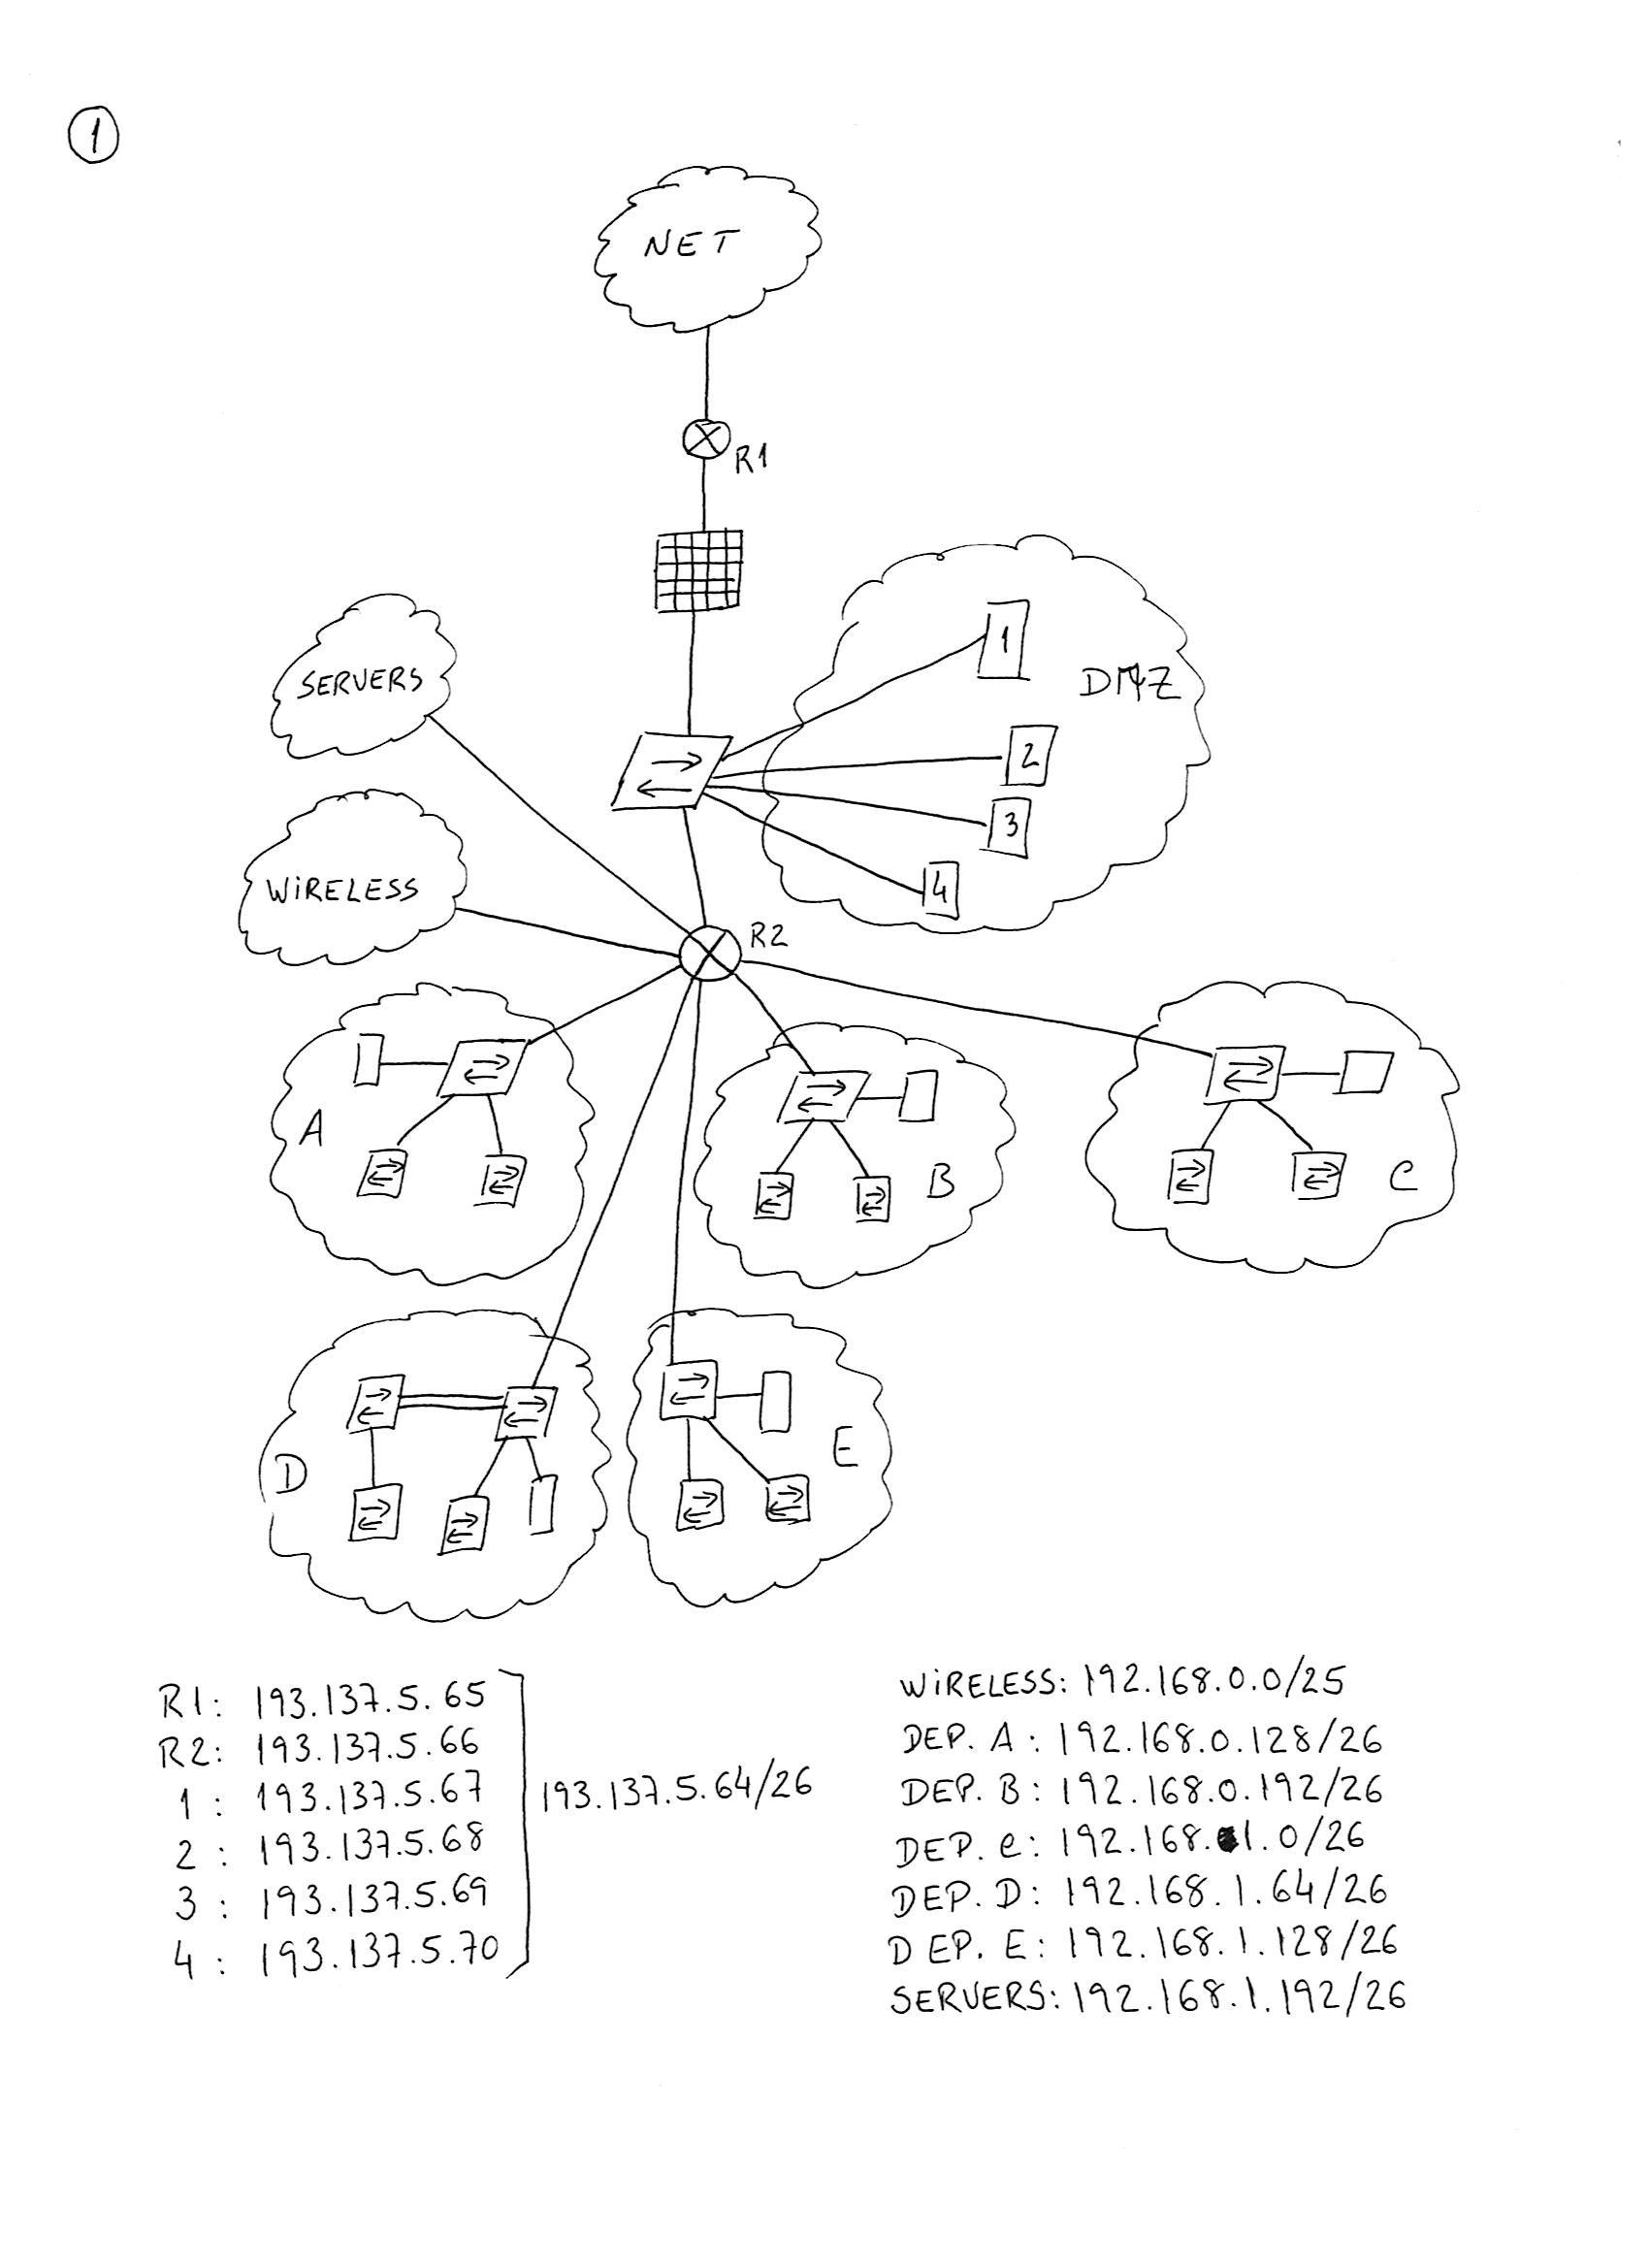 1
NET
R1
1
DMZ
SERVERS
2
3
WiRELESS
4
R2
A
B
C
D
E
R1: 193.137.5.65
R2: 193.137.5.66
1: 193.137.5.67
2: 193.137.5.68
3: 193.137.5.69
4: 193.137.5.70
193.137.5.64/26
WiRELESS: 192.168.0.0/25
DEP. A: 192.168.0.128/26
DEP. B: 192.168.0.192/26
DEP. C: 192.168.1.0/26
DEP. D: 192.168.1.64/26
DEP. E: 192.168.1.128/26
SERVERS: 192.168.1.192/26